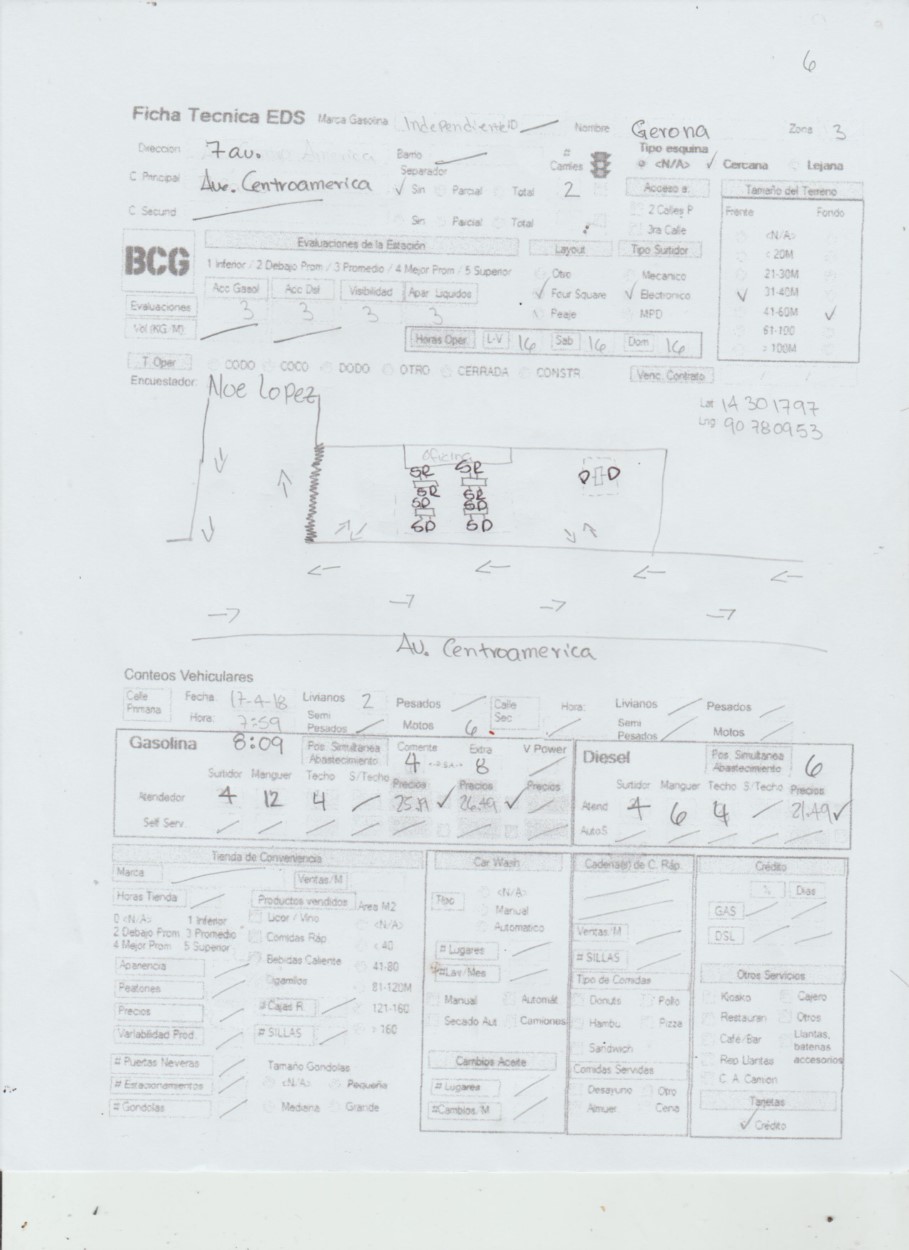 6
Ficha Tecnica EDS Marca Gasolina Independiente Nombre Gerona Zona 3
Direccion 7 av. Barrio # Carriles Tipo esquina <N/A> Cercana Lejana
C Principal Ave. Centroamerica Separador Sin Parcial Total 2 Acceso a: Tamaño del Terreno
C Secund Sin Parcial Total 2 Calles P Frente Fondo
3ra Calle <N/A>
BCG Evaluaciones de la Estación Layout Tipo Surtidor < 20M
1 Inferior / 2 Debajo Prom / 3 Promedio / 4 Mejor Prom / 5 Superior Otro Mecanico 21-30M
Acc Gasol Acc Dsl Visibilidad Apar Liquidos Four Square Electronico 31-40M
Evaluaciones 3 3 3 3 Peaje MPD 41-60M
Vol (KG/M) 61-100
Horas Oper L-V 16 Sab 16 Dom 16 > 100M
T.Oper CODO COCO DODO OTRO CERRADA CONSTR. Venc. Contrato / /
Encuestador: Noe Lopez
Lat 14 301797
Lng 90 780953
Oficina
SR SR D D
SR SR
SD SD
SD SD
Av. Centroamerica
Conteos Vehiculares
Calle Primaria Fecha: 17-4-18 Livianos 2 Pesados Calle Sec Hora: Livianos Pesados
Hora: 7:59 Semi Pesados Motos 6 Semi Pesados Motos
Gasolina 8:09 Pos. Simultanea Abastecimiento Corriente 4 Extra 8 V Power Diesel Pos. Simultanea Abastecimiento 6
Surtidor Manguer Techo S/Techo Precios Precios Precios Surtidor Manguer Techo S/Techo Precios
Atendedor 4 12 4 26.49 Atend 4 6 4 21.49
Self Serv. AutoS
Tienda de Conveniencia Car Wash Cadena(s) de C. Ráp. Crédito
Marca Ventas/M % Dias
Horas Tienda Productos vendidos Area M2 Tipo <N/A> GAS
0 <N/A> 1 Inferior Licor / Vino <N/A> Manual
2 Debajo Prom 3 Promedio Comidas Ráp < 40 Automatico Ventas/M DSL
4 Mejor Prom 5 Superior Bebidas Caliente 41-80 # Lugares # SILLAS
Apariencia Cigarrillos 81-120M #Lav/Mes Tipo de Comidas Otros Servicios
Peatones # Cajas R. 121-160 Manual Automát Donuts Pollo Kiosko Cajero
Precios # SILLAS > 160 Secado Aut Camiones Hambu Pizza Restauran Otros
Variabilidad Prod. Sandwich Café/Bar Llantas, baterias accesorios
# Puertas Neveras Tamaño Gondolas Cambios Aceite Comidas Servidas Rep Llantas
# Estacionamientos <N/A> Pequeña # Lugares Desayuno Otro C. A. Camion
# Gondolas Mediana Grande #Cambios/M Almuer Cena Tarjetas
Crédito